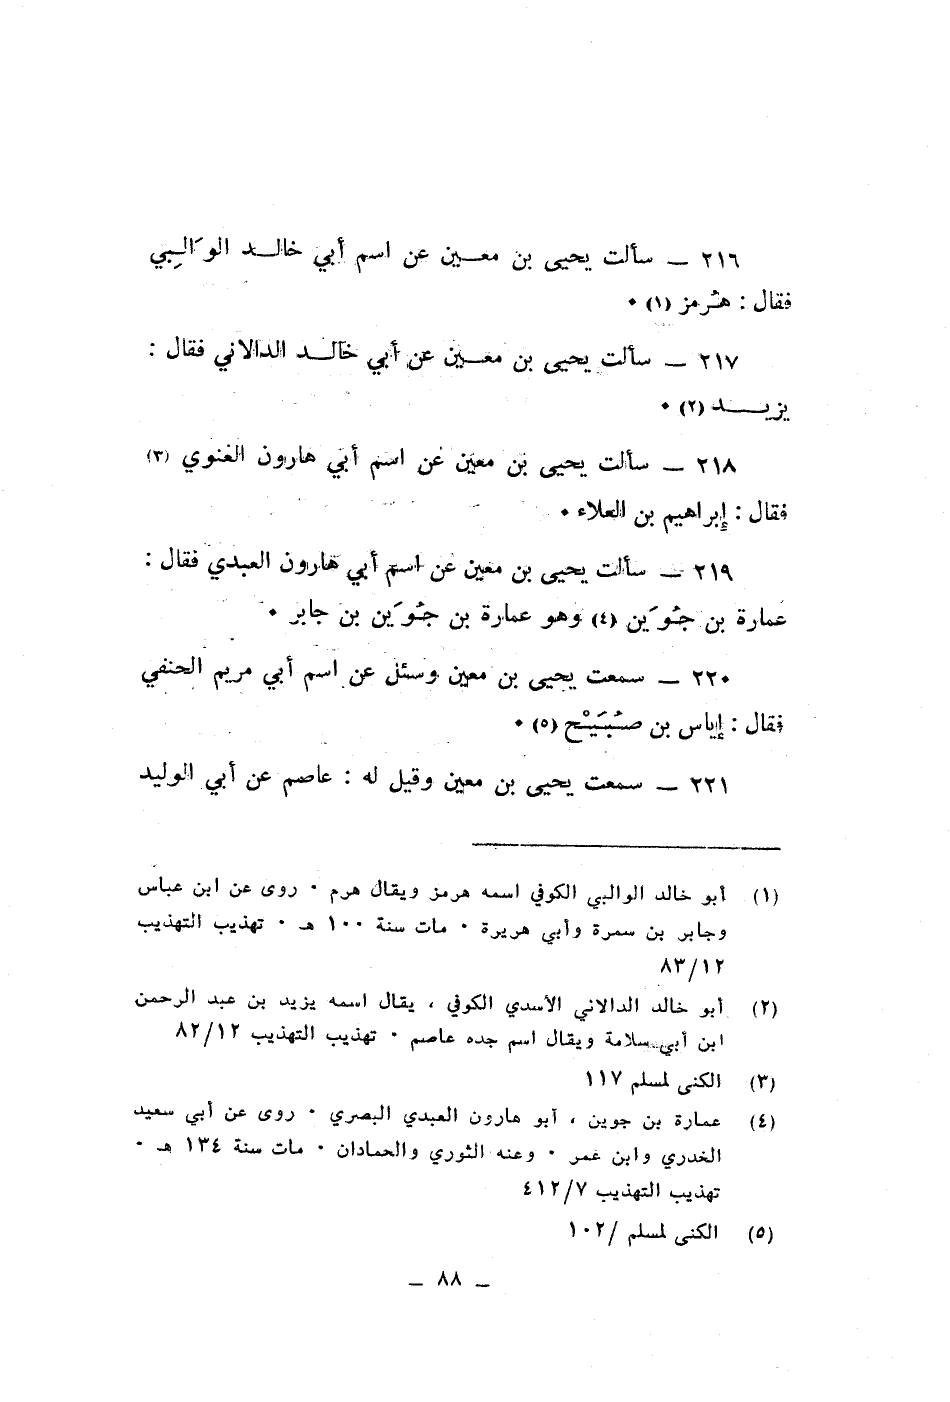 ٢١٦ ــ سألت يحيى بن معــين عن اسم أبي خالــد الوَالِبي
فقال : هُرمز (١) ٠
٢١٧ ــ سألت يحيى بن معــين عن أبي خالــد الدالاني فقال :
يزيــــد (٢) ٠
٢١٨ ــ سألت يحيى بن معين عن اسم أبي هارون الغنوي (٣)
فقال : إبراهيم بن العلاء ٠
٢١٩ ــ سألت يحيى بن معين عن اسم أبي هارون العبدي فقال :
عمارة بن جُوَين (٤) وهو عمارة بن جُوَين بن جابر ٠
٢٢٠ ــ سمعت يحيى بن معين وسئل عن اسم أبي مريم الحنفي
فقال : إياس بن صُبَيْح (٥) ٠
٢٢١ ــ سمعت يحيى بن معين وقيل له : عاصم عن أبي الوليد
(١) أبو خالد الوالبي الكوفي اسمه هرمز ويقال هرم ٠ روى عن ابن عباس
وجابر بن سمرة وأبي هريرة ٠ مات سنة ١٠٠ هـ ٠ تهذيب التهذيب
٨٣/١٢
(٢) أبو خالد الدالاني الأسدي الكوفي ، يقال اسمه يزيد بن عبد الرحمن
ابن أبي سلامة ويقال اسم جده عاصم ٠ تهذيب التهذيب ٨٢/١٢
(٣) الكنى لمسلم ١١٧
(٤) عمارة بن جوين ، أبو هارون العبدي البصري ٠ روى عن أبي سعيد
الخدري وابن عمر ٠ وعنه الثوري والحمادان ٠ مات سنة ١٣٤ هـ ٠
تهذيب التهذيب ٤١٢/٧
(٥) الكنى لمسلم /١٠٢
ــ ٨٨ ــ